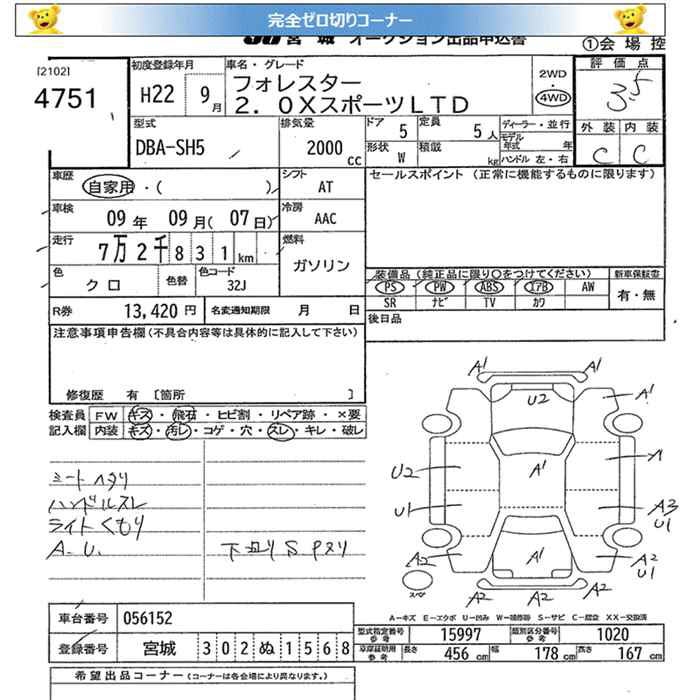 完全ゼロ切りコーナー
JU 宮城 オークション出品申込書
①会場控
[2102]
4751
初度登録年月
H22 9月
車名・グレード
フォレスター
2.0XスポーツLTD
2WD
・
4WD
評価点
3.5
型式
DBA-SH5
排気量
2000cc
ドア 5
定員 5人
形状 W
積載 kg
ディーラー・並行
モデル年式 年
ハンドル 左・右
外装 内装
C C
車歴
自家用・( )
シフト AT
セールスポイント (正常に機能するものに限ります)
車検
09年 09月(07日)
冷房 AAC
走行
7万2千831km
燃料
ガソリン
色 クロ
色替
色コード 32J
装備品(純正品に限り○をつけてください)
PS PW ABS エアB AW
SR ナビ TV カワ
新車保証書
有・無
R券 13,420円
名変通知期限 月 日
後日品
注意事項申告欄(不具合内容等は具体的に記入して下さい)
修復歴 有 〔箇所 〕
検査員記入欄
FW キズ・飛石・ヒビ割・リペア跡・×要
内装 キズ・汚レ・コゲ・穴・スレ・キレ・破レ
シートヘタリ
ハンドルスレ
ライトくもり
A.U.
下廻りS
A1 A1
U2 A1
U2 A1 A1
U1 A3
U1
A2 A1 A2
U1
スペア
A2 A2 A2
A-キズ E-エクボ U-凹み W-補修跡 S-サビ C-腐食 XX-交換済
車台番号 056152
登録番号 宮城 302ぬ1568
型式指定番号 参考 15997
類別区分番号 参考 1020
車庫証明用 参考 長さ 456cm 幅 178cm 高さ 167cm
希望出品コーナー(コーナーは各会場により異なります。)